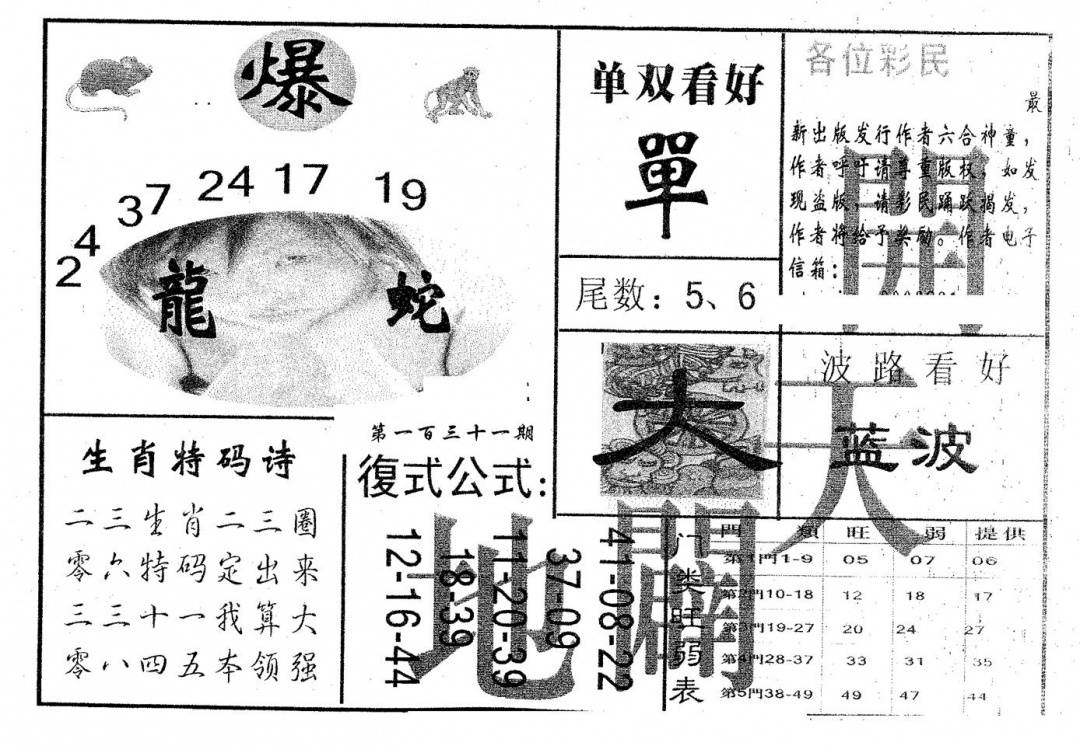 爆
2 4 37 24 17 19
龍 蛇
单双看好
單
尾数：5、6
各位彩民
最
新出版发行作者六合神童，
作者呼吁请尊重版权，如发
现盗版，请彩民踊跃揭发，
作者将给予奖励。作者电子
信箱：
大
波路看好
蓝波
開天闢地
生肖特码诗
二三生肖二三圈
零六特码定出来
三三十一我算大
零八四五本领强
第一百三十一期
復式公式：
41-08-22
37-09
11-20-39
18-39
12-16-44
门类旺弱表
門 類 旺 弱 提供
第1門1-9 05 07 06
第2門10-18 12 18 17
第3門19-27 20 24 27
第4門28-37 33 31 35
第5門38-49 49 47 44